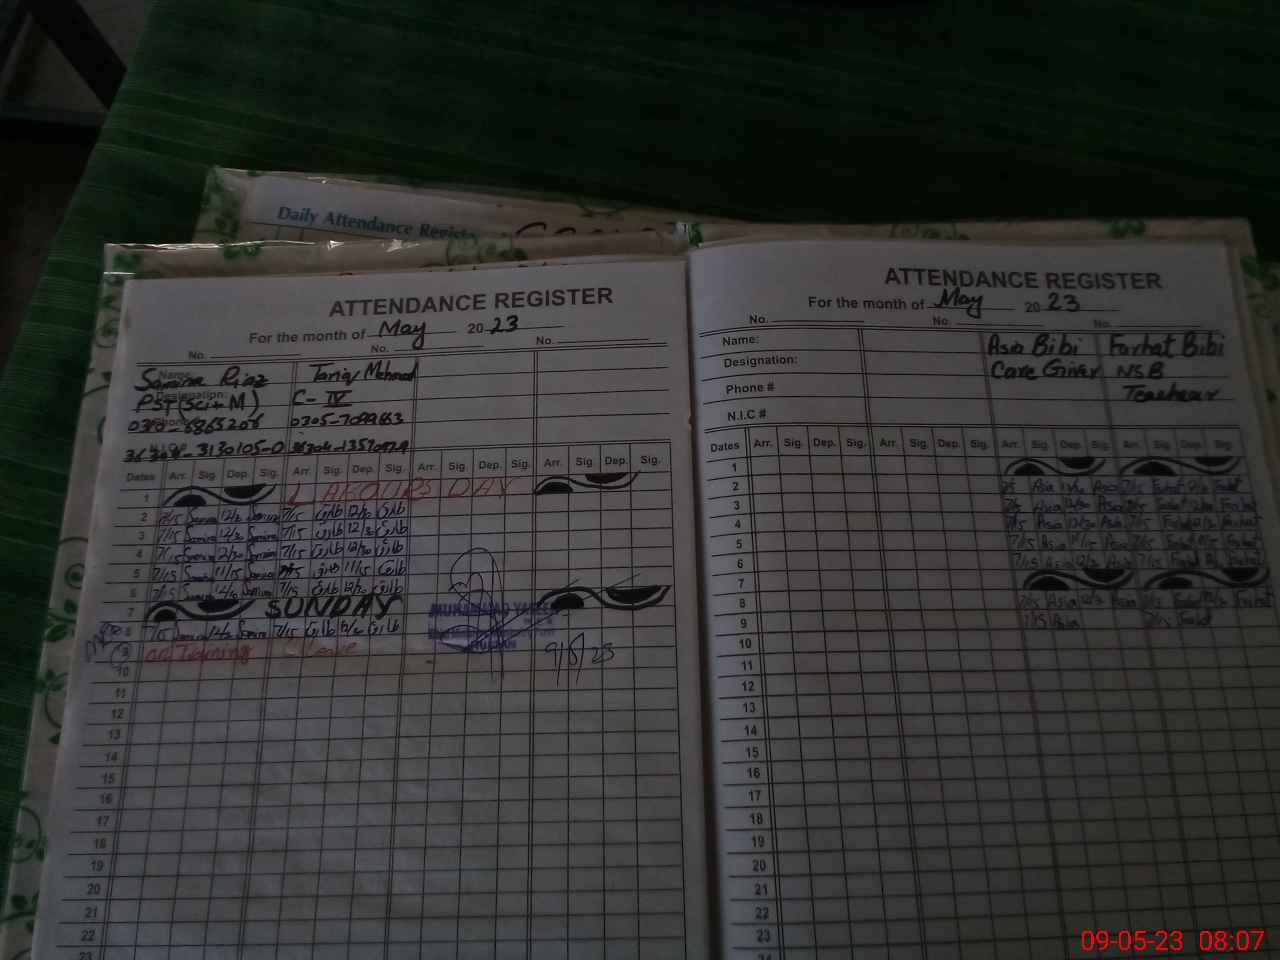 Daily Attendance Registe
ATTENDANCE REGISTER
For the month of May 2023
No. No. No.
Name: Samina Riaz Tariq Mehmod
Designation: PST (Sci+M) C-IV
0305-7099663
Dates Arr. Sig. Dep. Sig. Arr. Sig. Dep. Sig. Arr. Sig. Dep. Sig. Arr. Sig Dep. Sig.
1 LABOURS DAY
2 7/15 Samina 12/30 Samina 7/15 طارق 12/30 طارق
3 7/15 Samina 12/30 Samina 7/15 طارق 12/30 طارق
4 7/15 Samina 12/30 Samina 7/15 طارق 12/30 طارق
5 7/15 Samina 11/15 Samina 7/15 طارق 11/15 طارق
6 7/15 Samina 12/30 Samina 7/15 طارق 12/30 طارق
7 SUNDAY
8 7/15 Samina 12/30 Samina 7/15 طارق 12/30 طارق
9 on Training Leave 9/5/23
10
11
12
13
14
15
16
17
18
19
20
21
22
23
ATTENDANCE REGISTER
For the month of May 2023
No. No. No.
Name: Asia Bibi Farhat Bibi
Designation: Care Giver NSB
Phone # Teacheur
N.I.C #
Dates Arr. Sig. Dep. Sig. Arr. Sig. Dep. Sig. Arr. Sig. Dep. Sig. Arr. Sig. Dep. Sig.
1
2 Asia 12/30 Asia 7/15 Farhat 12/30 Farhat
3 Asia 12/30 Asia 7/15 Farhat 12/30 Farhat
4 7/15 Asia 12/30 Asia 7/15 Farhat 12/30 Farhat
5 7/15 Asia 11/15 Asia 7/15 Farhat 11/15 Farhat
6 7/15 Asia 12/30 Asia 7/15 Farhat 12/30 Farhat
7
8 7/15 Asia 12/30 Asia 7/15 Farhat 12/30 Farhat
9 7/15 Asia 7/15 Farhat
10
11
12
13
14
15
16
17
18
19
20
21
22
23
24
09-05-23 08:07